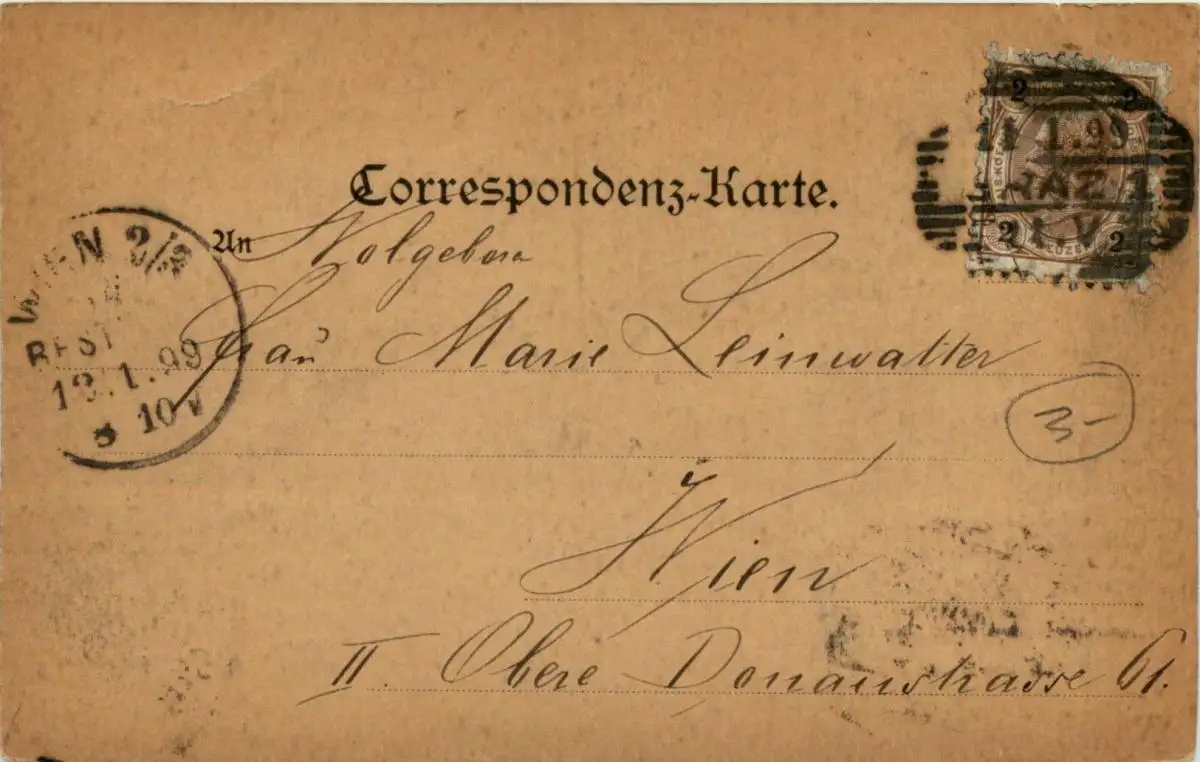 2 2
1.99
2 2
Correspondenz-Karte.
An Wolgeboren
Frau Marie Leinwatter
Wien
II. Obere Donaustrasse 61.
WIEN 2/2
BEST
1.99
10 V
3-